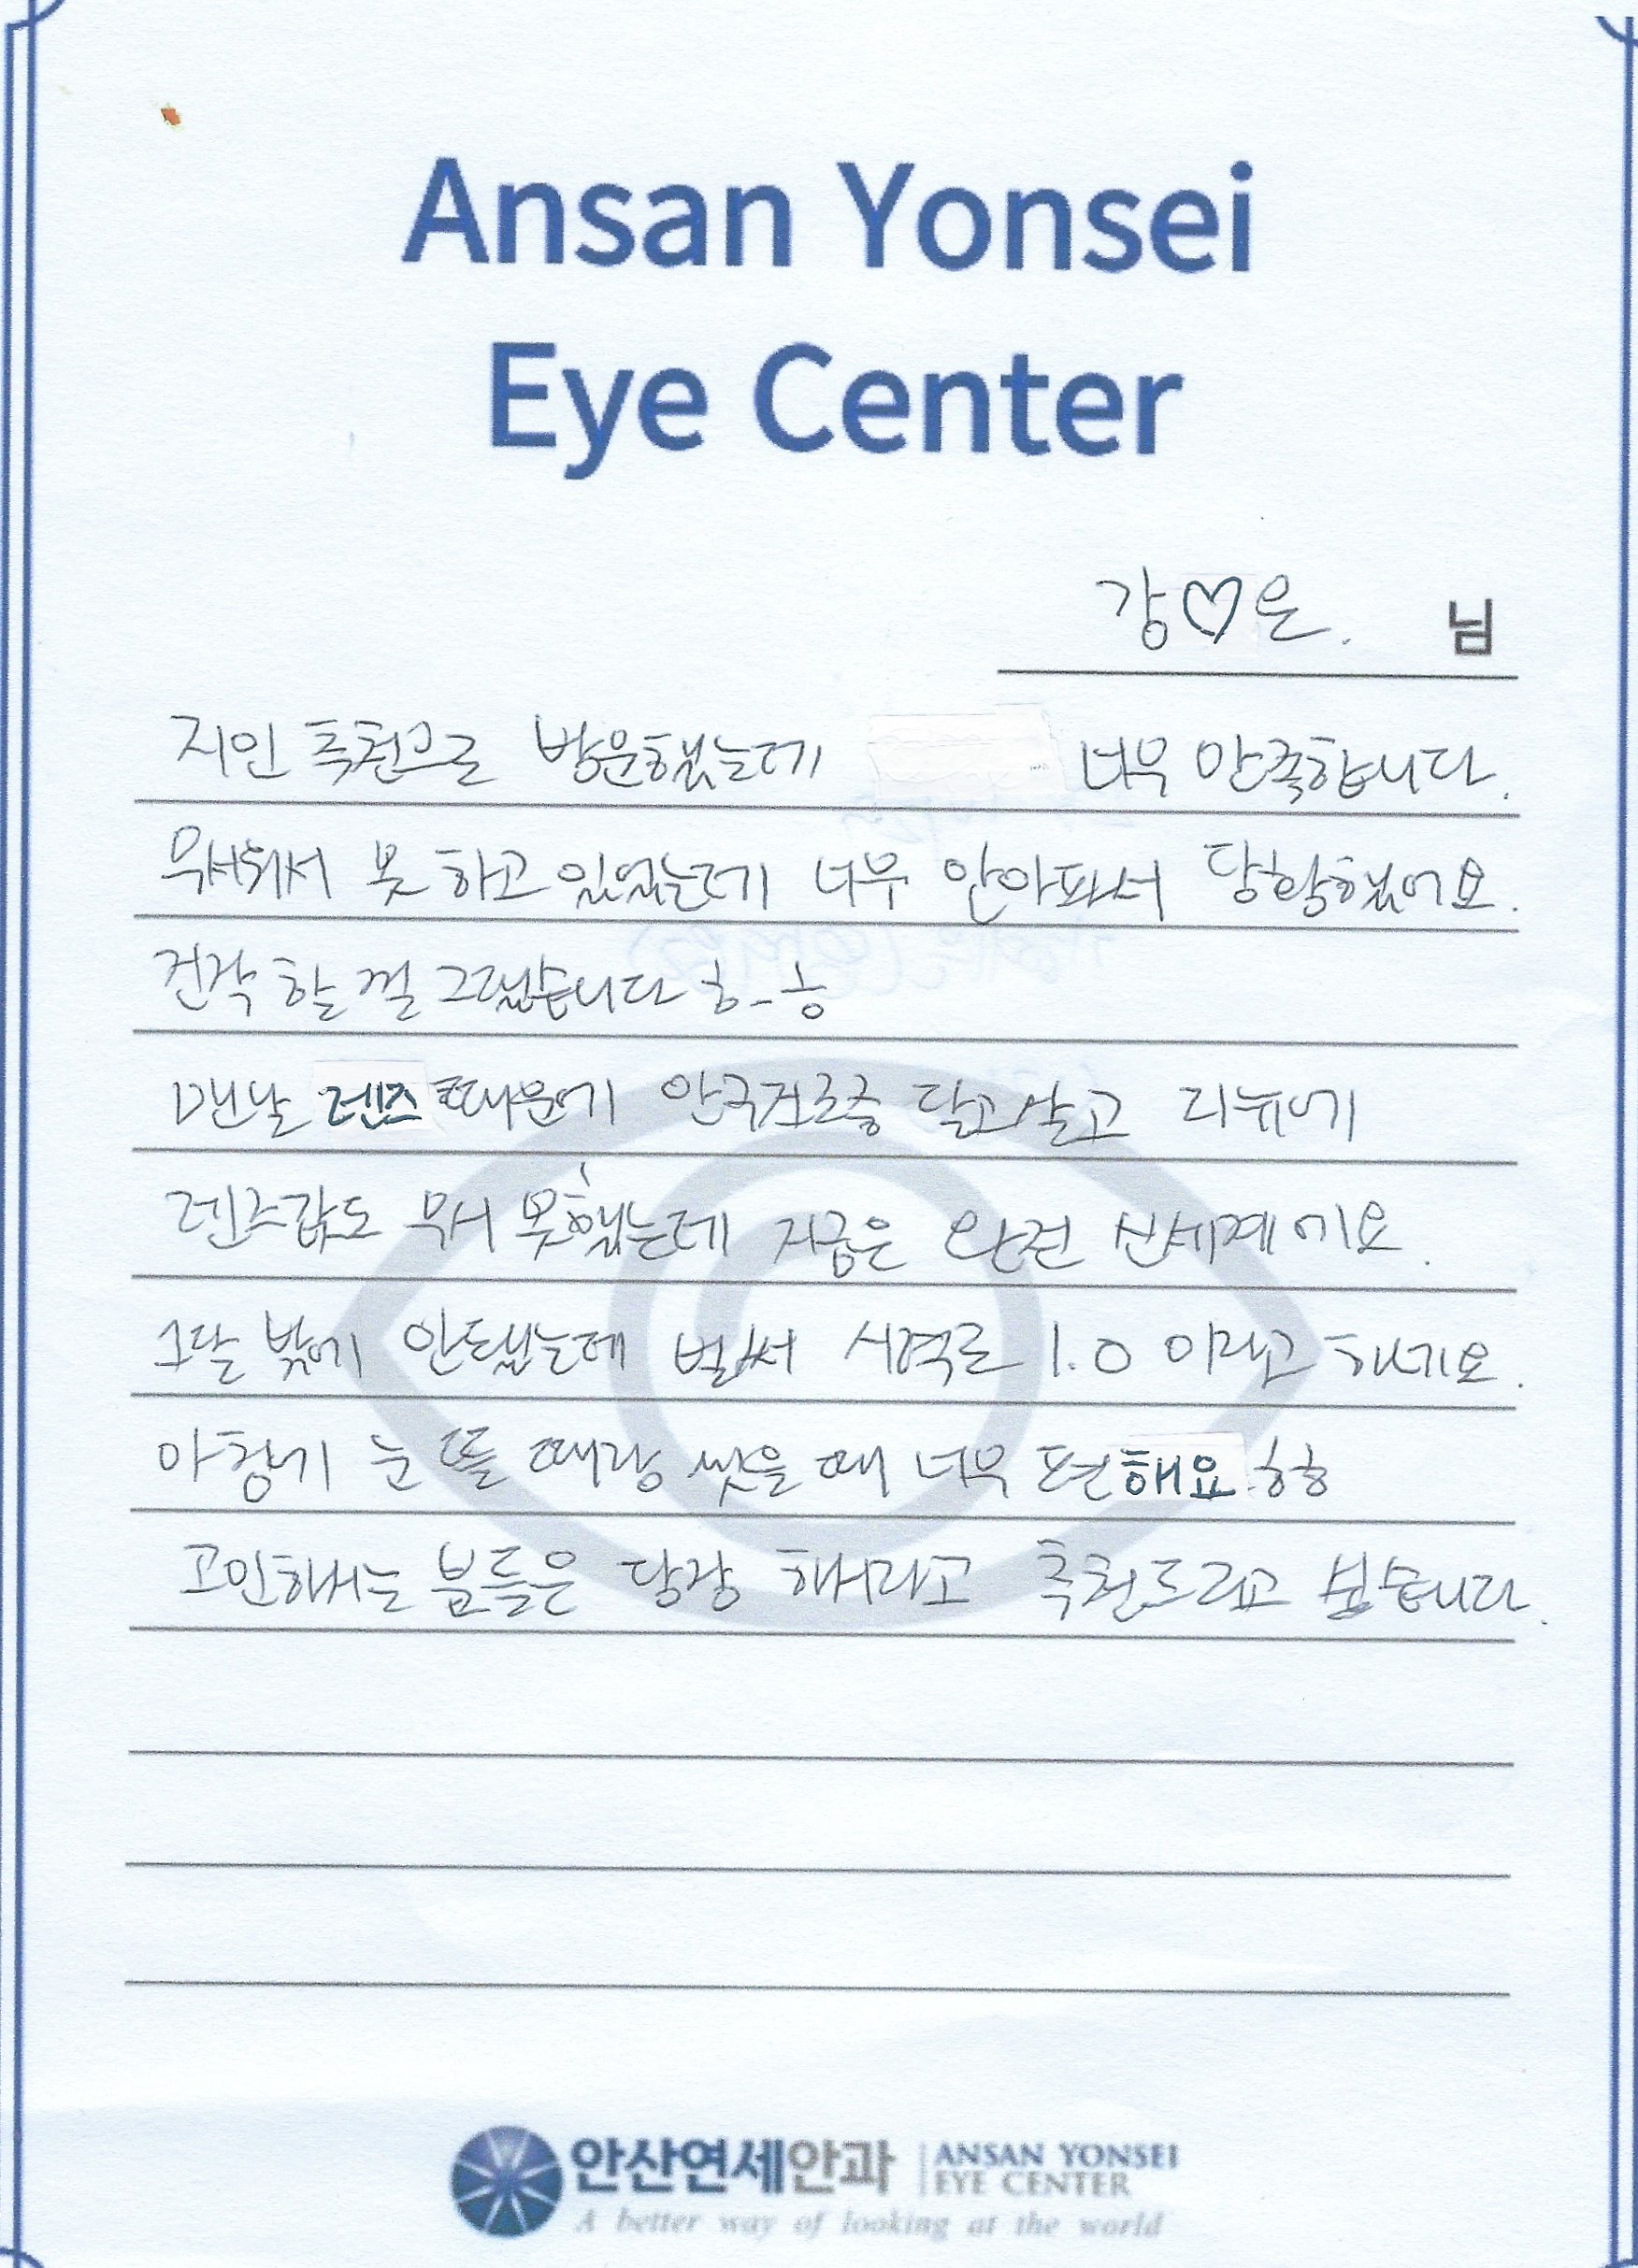 Ansan Yonsei
Eye Center
강♡은. 님
지인 추천으로 방문했는데 너무 만족합니다.
무서워서 못 하고 있었는데 너무 안아파서 당황했어요.
진작 할 껄 그랬습니다 ㅎ_ㅎ
맨날 렌즈 때문에 안구건조증 달고살고 리뉴에
렌즈값도 무시 못했는데 지금은 완전 신세계에요.
1달 밖에 안됐는데 벌써 시력도 1.0 이라고 하네요.
아침에 눈 뜰 때랑 씻을 때 너무 편해요 ㅎㅎ
고민하시는 분들은 당장 하시라고 추천드리고 싶습니다.
안산연세안과 ANSAN YONSEI
EYE CENTER
A better way of looking at the world